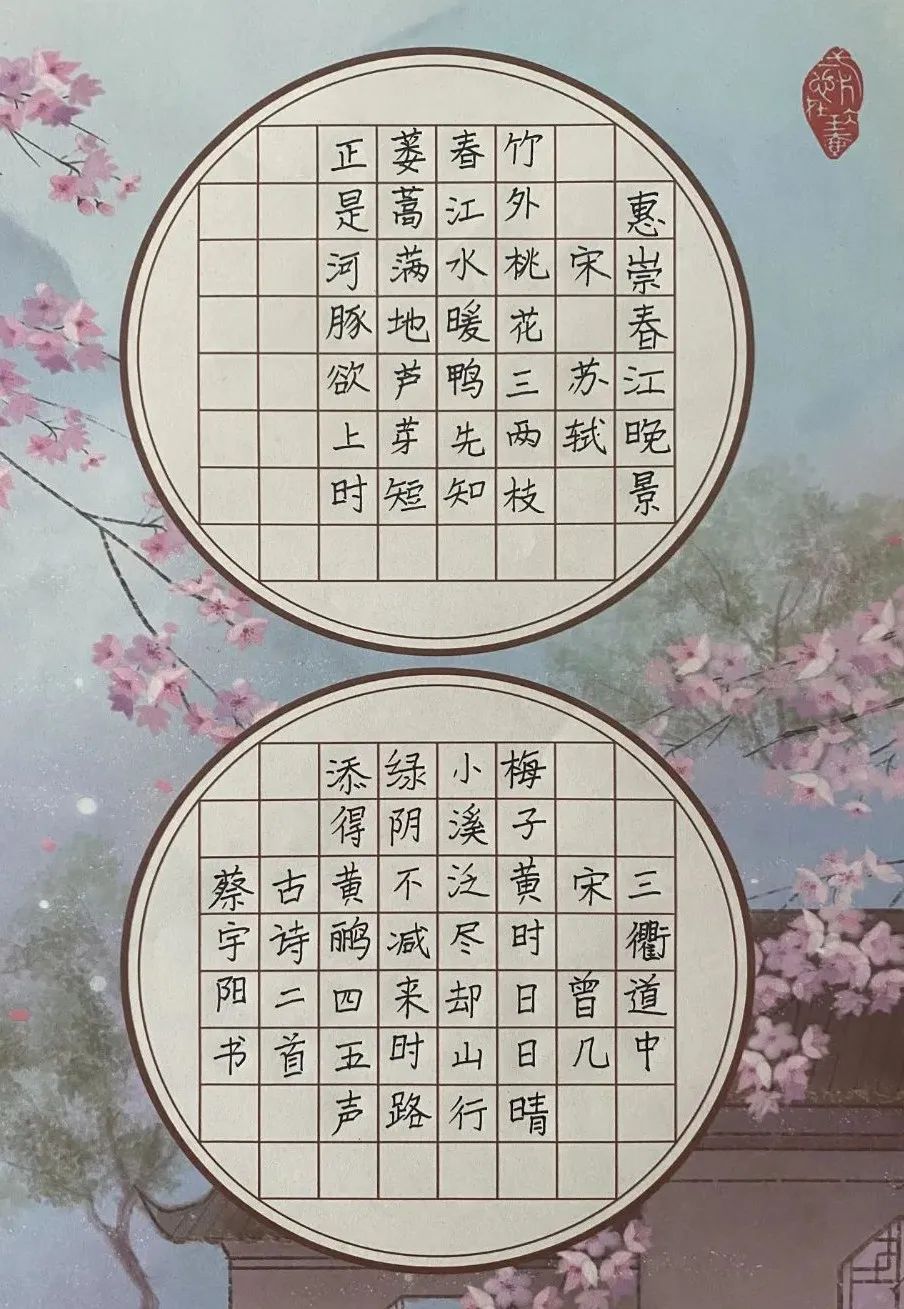 惠崇春江晚景
宋 苏轼
竹外桃花三两枝
春江水暖鸭先知
蒌蒿满地芦芽短
正是河豚欲上时
三衢道中
宋 曾几
梅子黄时日日晴
小溪泛尽却山行
绿阴不减来时路
添得黄鹂四五声
古诗二首
蔡宇阳书